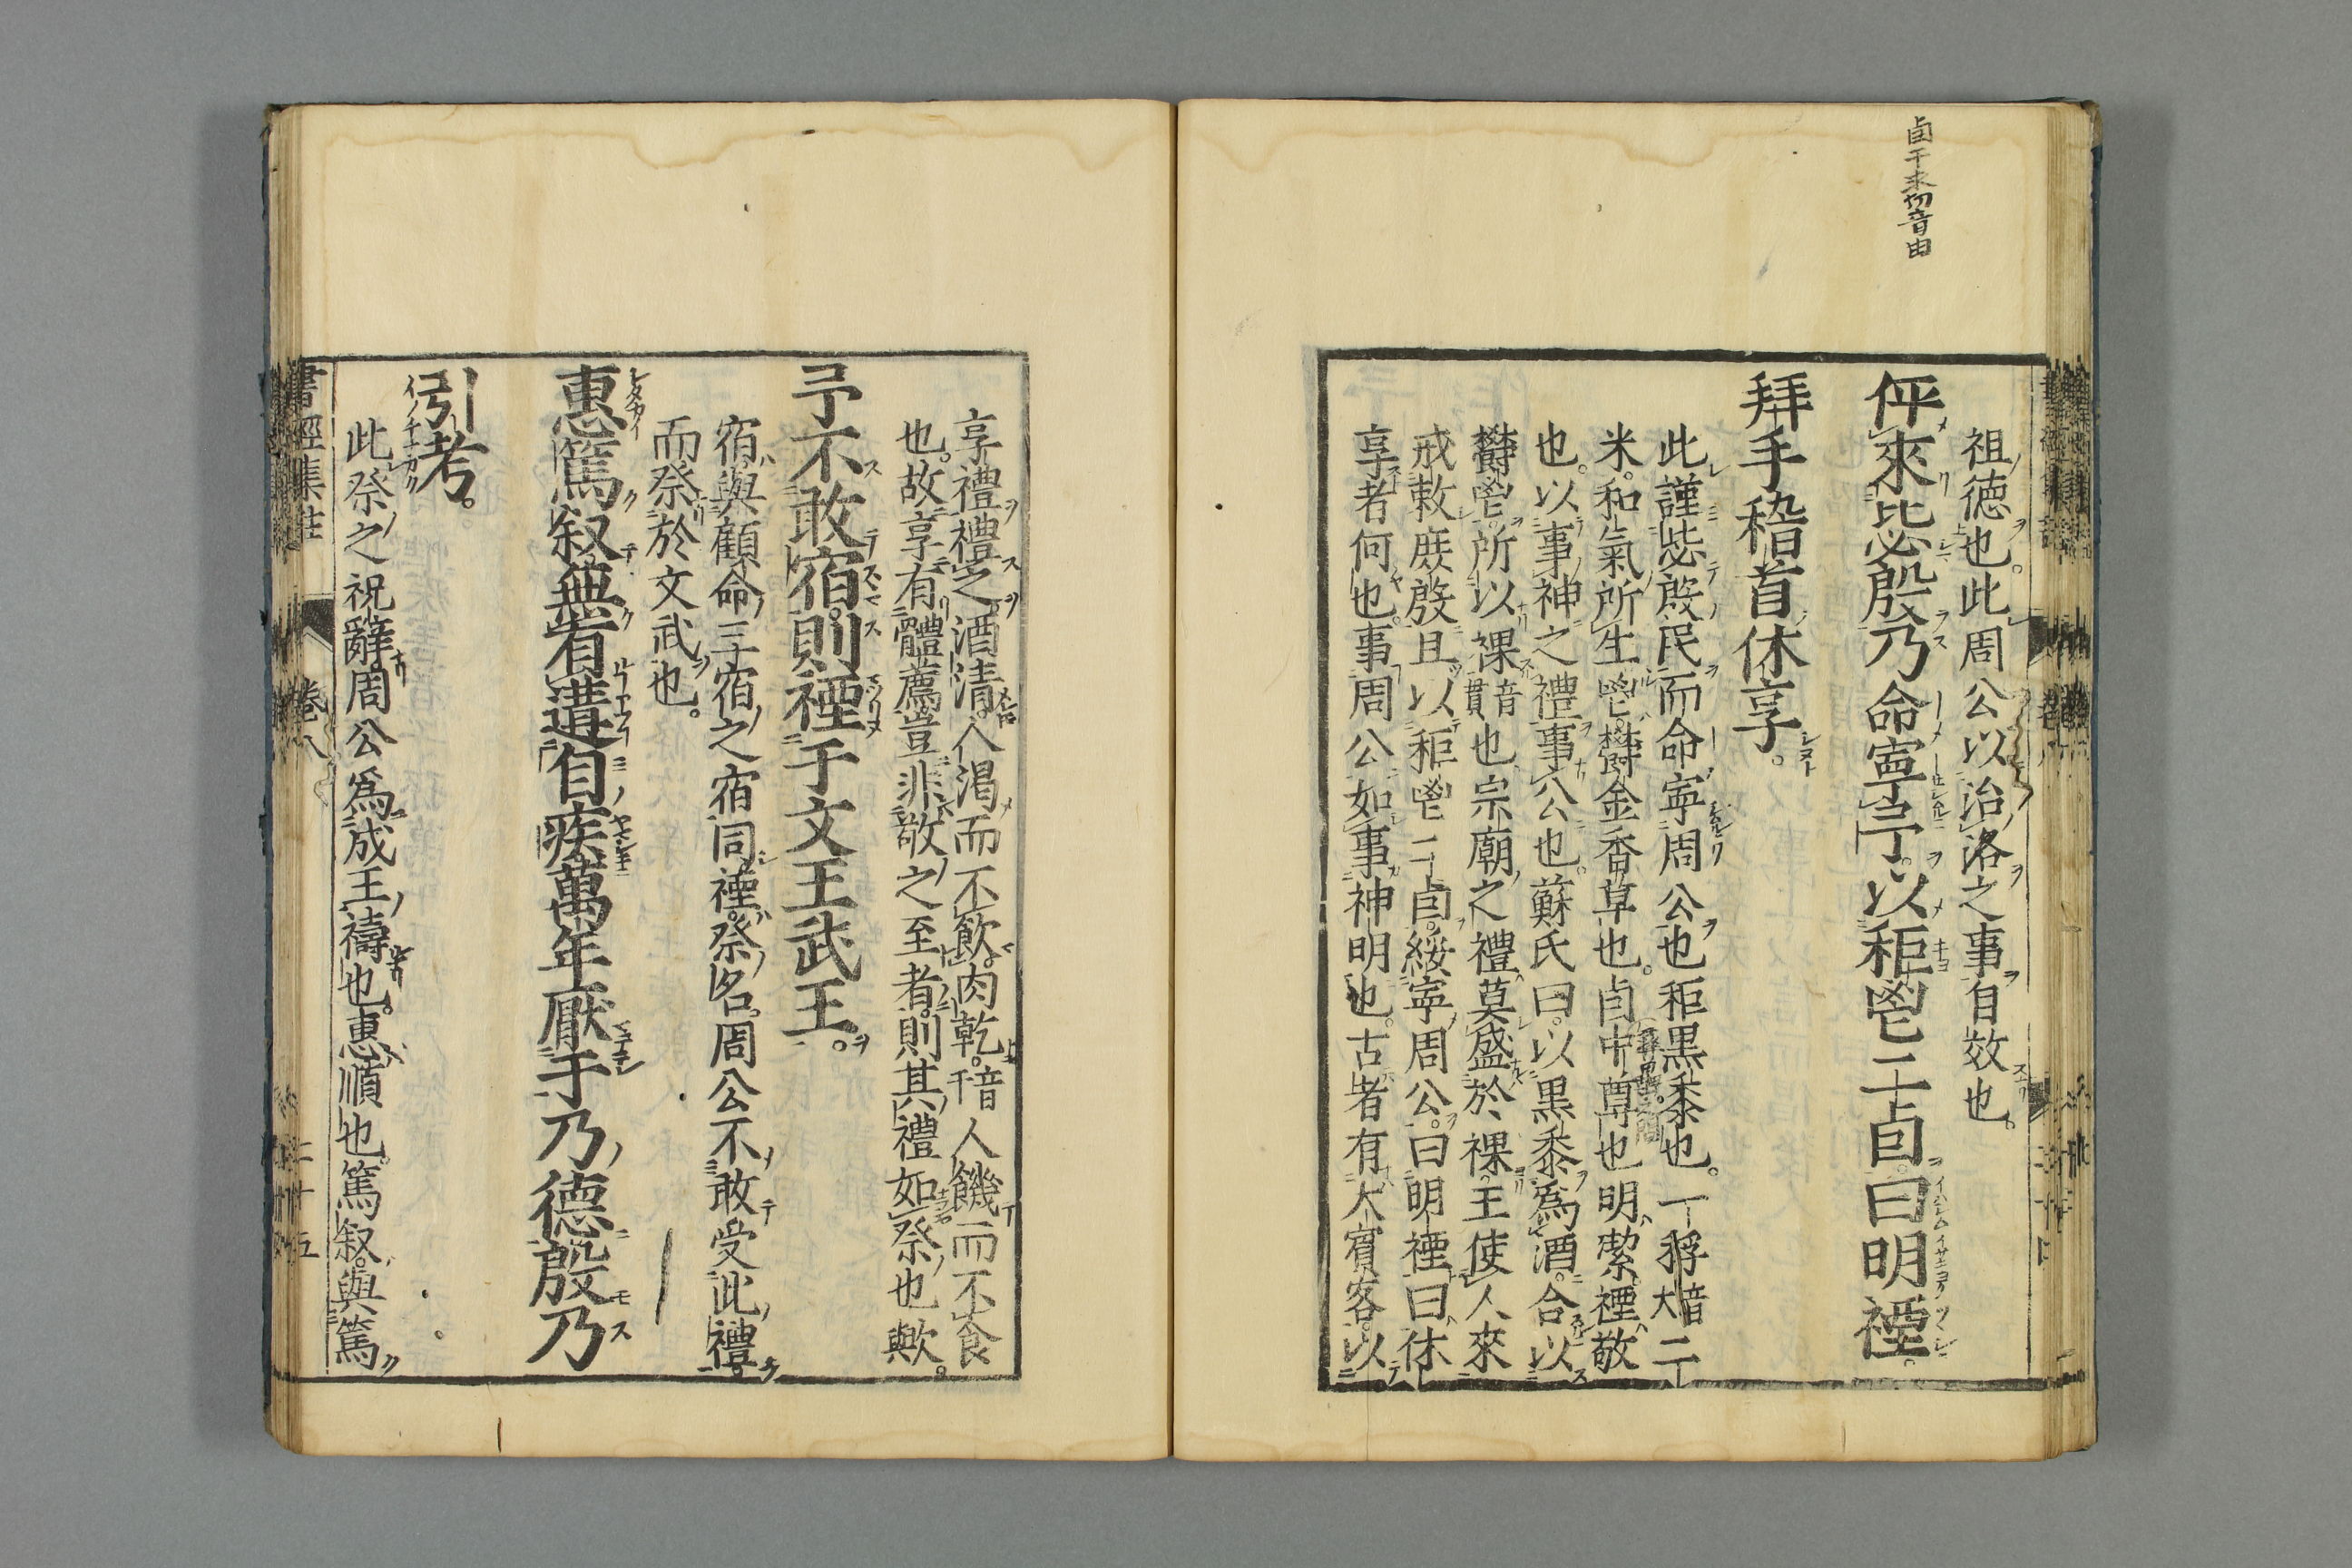 卣于求切音由
祖德也。此周公以治洛之事自效也。
伻來毖殷乃命寧予。以秬鬯二卣。曰明禋。
拜手稽首休享。
此謹毖殷民而命寧周公也秬黒黍也。一稃音大二
米。和氣所生鬯。鬱金香草也。卣中尊也明。潔禋。敬
也。以事神之禮事公也。蘇氏曰。以黒黍爲酒。合以
鬱鬯。所以祼音貫也宗廟之禮莫盛於祼。王使人來
戒敕庶殷且以秬鬯二卣。綏寧周公。曰明禋曰休
享者何也。事周公如事神明也。古者有大賓客。以
享禮禮之酒清。人渴而不飲。肉乾。音干人饑而不食
也。故享有體薦豈非敬之至者。則其禮如祭也歟。
予不敢宿。則禋于文王武王。
宿。與顧命三宿之宿同。禋。祭名。周公不敢受此禮。
而祭於文武也。
惠篤叙。無有遘自疾萬年厭于乃德殷乃
引考。
此祭之祝辭。周公爲成王禱也。惠順也。篤叙。與篤
書經集註 卷八 二十五